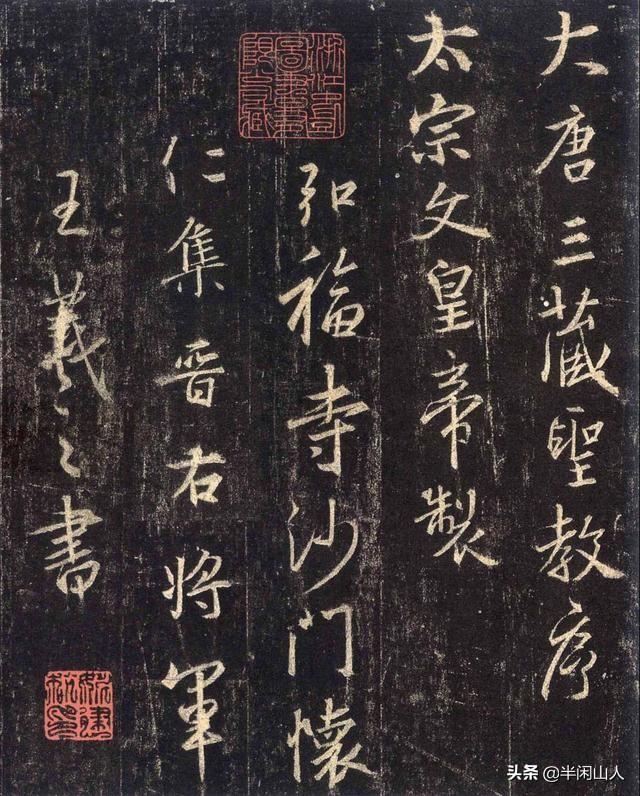 大唐三藏聖教序
太宗文皇帝製
弘福寺沙門懷
仁集晉右將軍
王羲之書
头条 @半闲山人